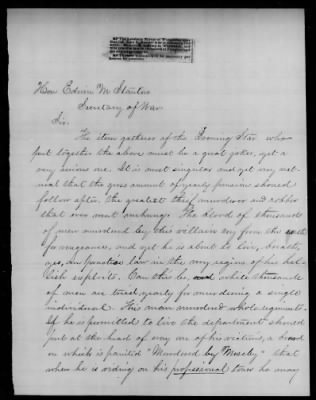 Hon Edwin M Stanton
Secretary of War
Sir.
The item gatherer of the Evening Star who
put together the above must be a great joker, yet a
very serious one. It is most singular and yet very nat-
ural that the gross amount of yearly pension should
follow after, the greatest thief, murderer and robber
that ever went unhung. The blood of thousands
of men murdered by this villain cry from the earth
for vengeance, and yet he is about to live, breath,
yes, Practice law in the very regions of his hel-
lish exploits. Can this be, and while thousands
of men are tried yearly for murdering a single
individual. This man murdered whole regiments.
If he is permitted to live the department should
put at the head of every one of his victims, a board
on which is painted "Murdered by Moseby" that
when he is riding on his professional tours he may